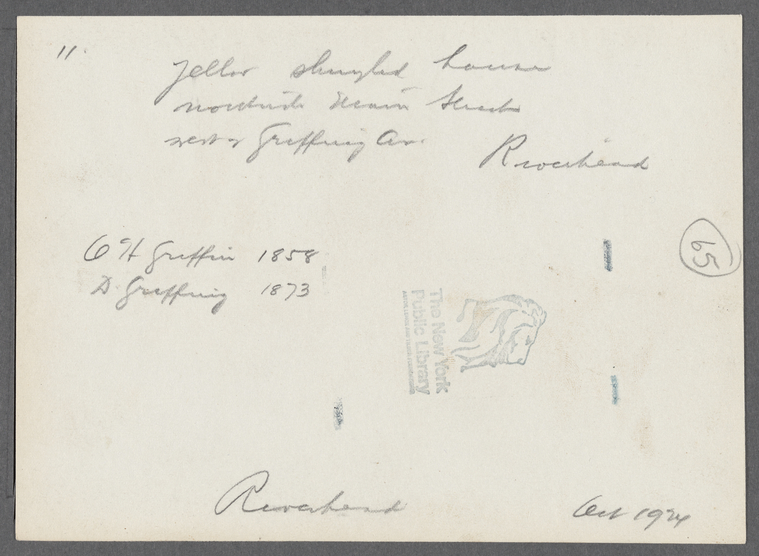 11.
Yellow shingled house
northside Main Street
west of Griffing Av.
Riverhead
65
O H Griffin 1858
D. Griffing 1873
The New York
Public Library
Riverhead
Oct 1924